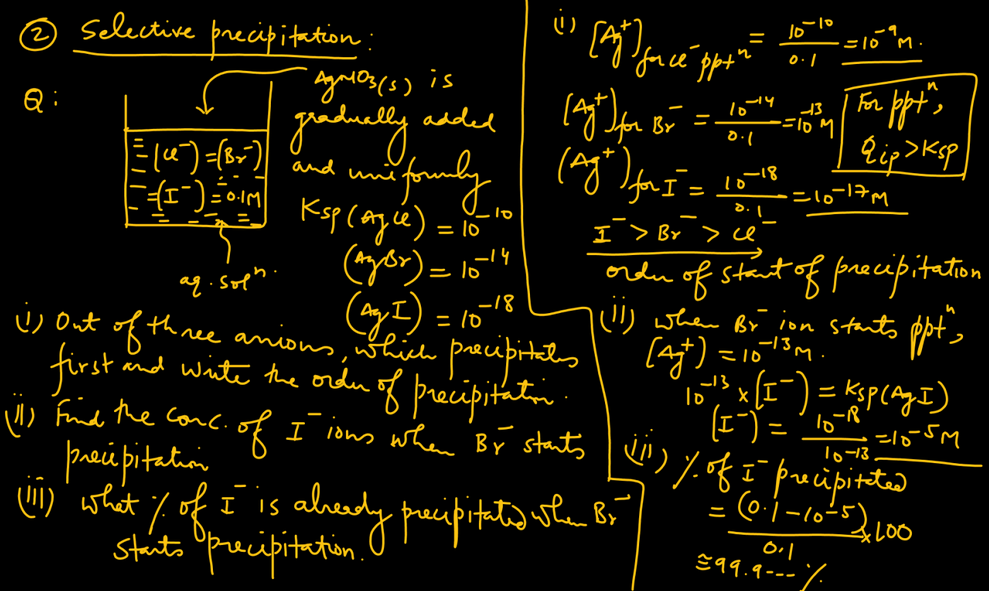 ② Selective precipitation:
Q:
AgNO₃(s) is
gradually added
and uniformly
(Cl⁻) = (Br⁻)
= (I⁻) = 0.1M
aq. solⁿ.
Ksp (AgCl) = 10⁻¹⁰
(AgBr) = 10⁻¹⁴
(AgI) = 10⁻¹⁸
i) Out of three anions, which precipitates
first and write the order of precipitation.
(ii) Find the conc. of I⁻ ions when Br⁻ starts
precipitation
(iii) What % of I⁻ is already precipitated when Br⁻
starts precipitation.
(i) [Ag⁺] for Cl⁻ pptⁿ = 10⁻¹⁰/0.1 = 10⁻⁹ M.
(Ag⁺) for Br⁻ = 10⁻¹⁴/0.1 = 10⁻¹³ M
(Ag⁺) for I⁻ = 10⁻¹⁸/0.1 = 10⁻¹⁷ M
For pptⁿ,
Qip > Ksp
I⁻ > Br⁻ > Cl⁻
order of start of precipitation
(ii) when Br⁻ ion starts pptⁿ,
[Ag⁺) = 10⁻¹³ M.
10⁻¹³ × [I⁻) = Ksp (AgI)
[I⁻) = 10⁻¹⁸/10⁻¹³ = 10⁻⁵ M
(iii) % of I⁻ precipitated
= (0.1 - 10⁻⁵)/0.1 × 100
≅ 99.9--- %